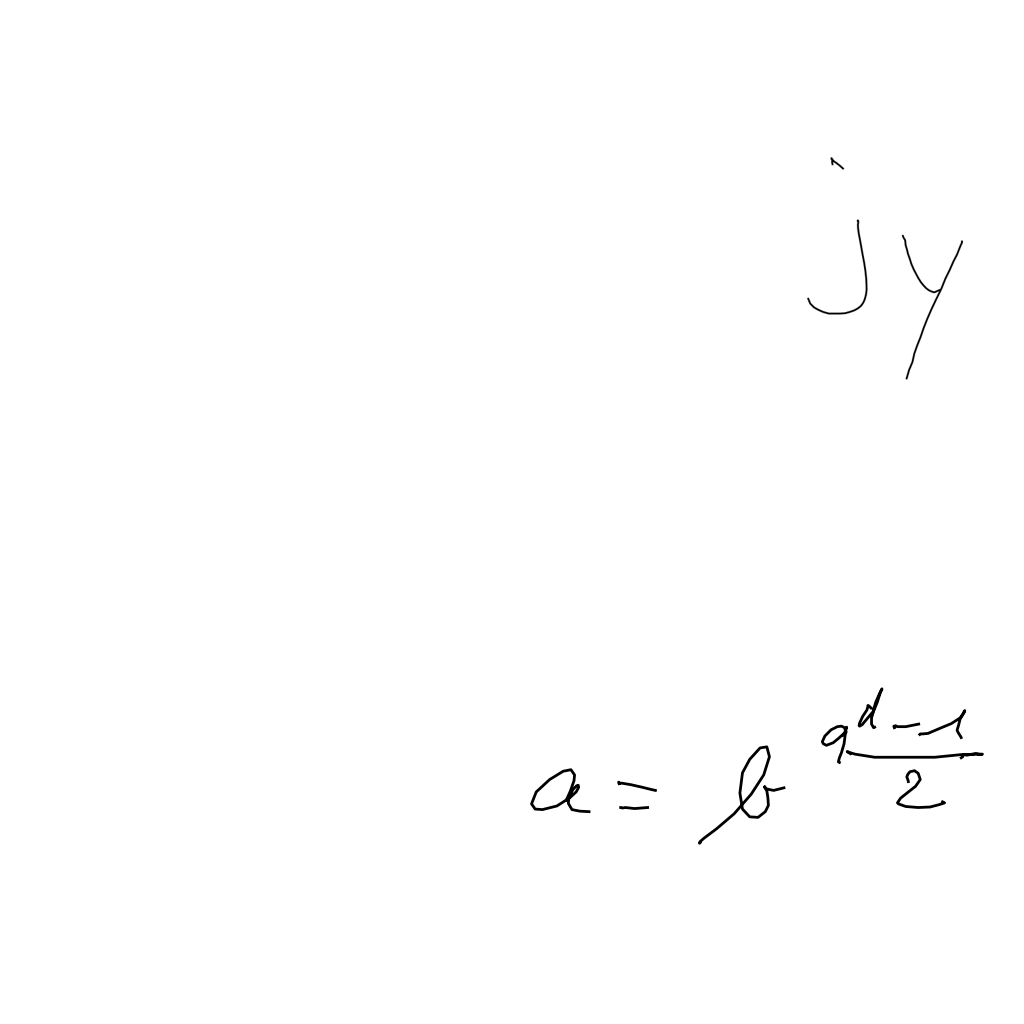 jy
a = b^{\frac{q^{d}-1}{2}}